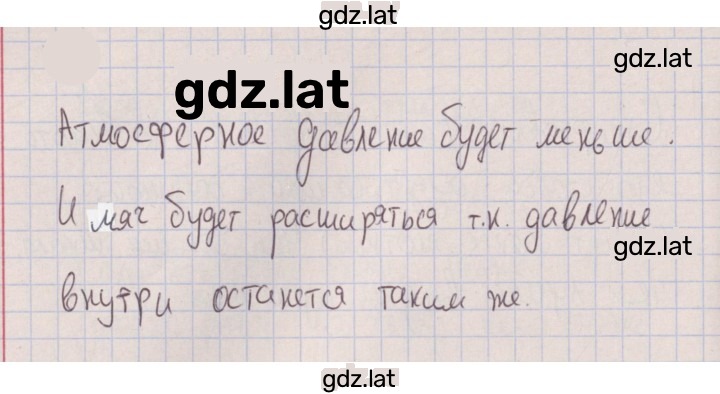 gdz.lat
gdz.lat
gdz.lat
Атмосферное давление будет меньше.
И мяч будет расширяться т.к. давление
gdz.lat
внутри останется таким же.
gdz.lat